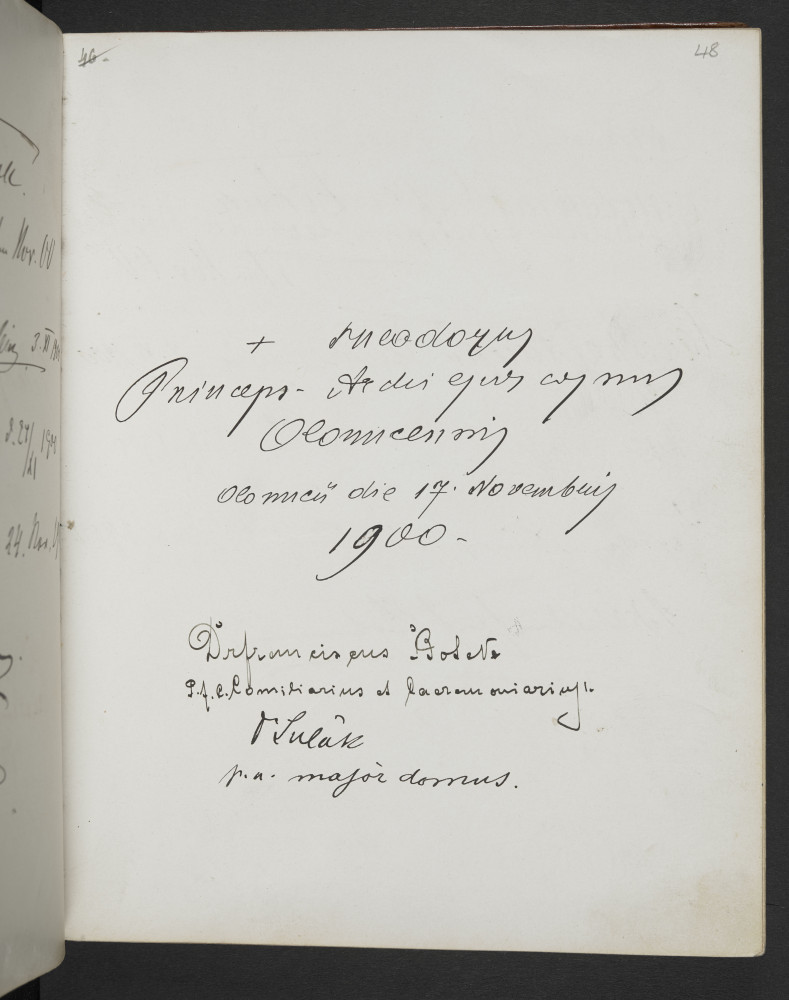 46.
48
+ Theodorus
Princeps-Archiepiscopus
Olomucensis
Olomucii die 17. Novembris
1900.-
Dr Franciscus
P. f. e. Consiliarius et Caeremoniarius.
Dr Sulák
p. a. major domus.
Nov. 00
3. XI
24. Nov.